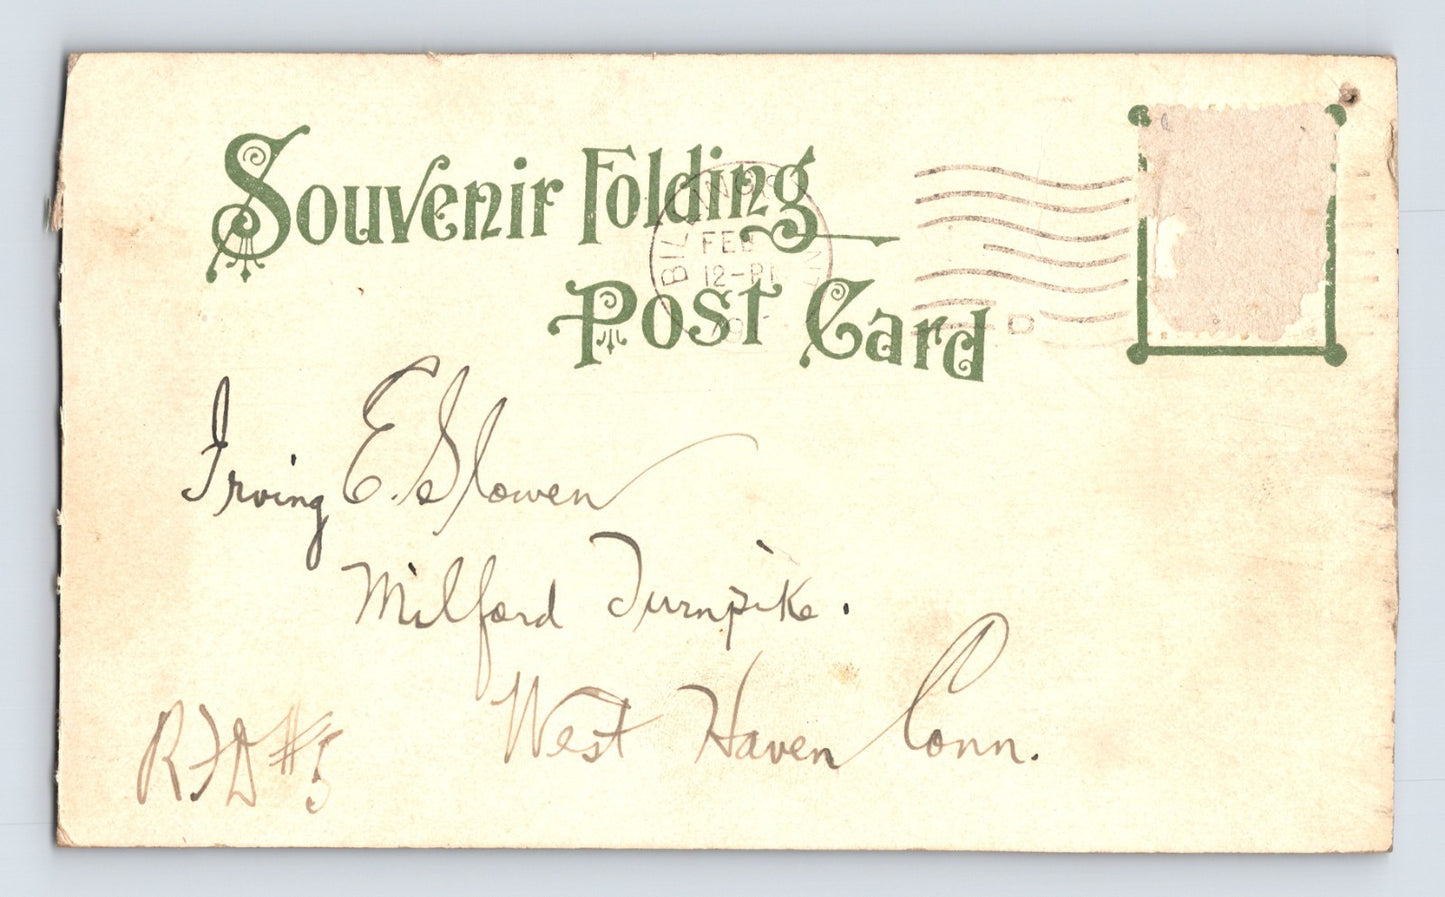 Souvenir Folding
Post Card
FEB
12-P
Irving E. Slowen
Milford Turnpike.
West Haven Conn.
RFD #5